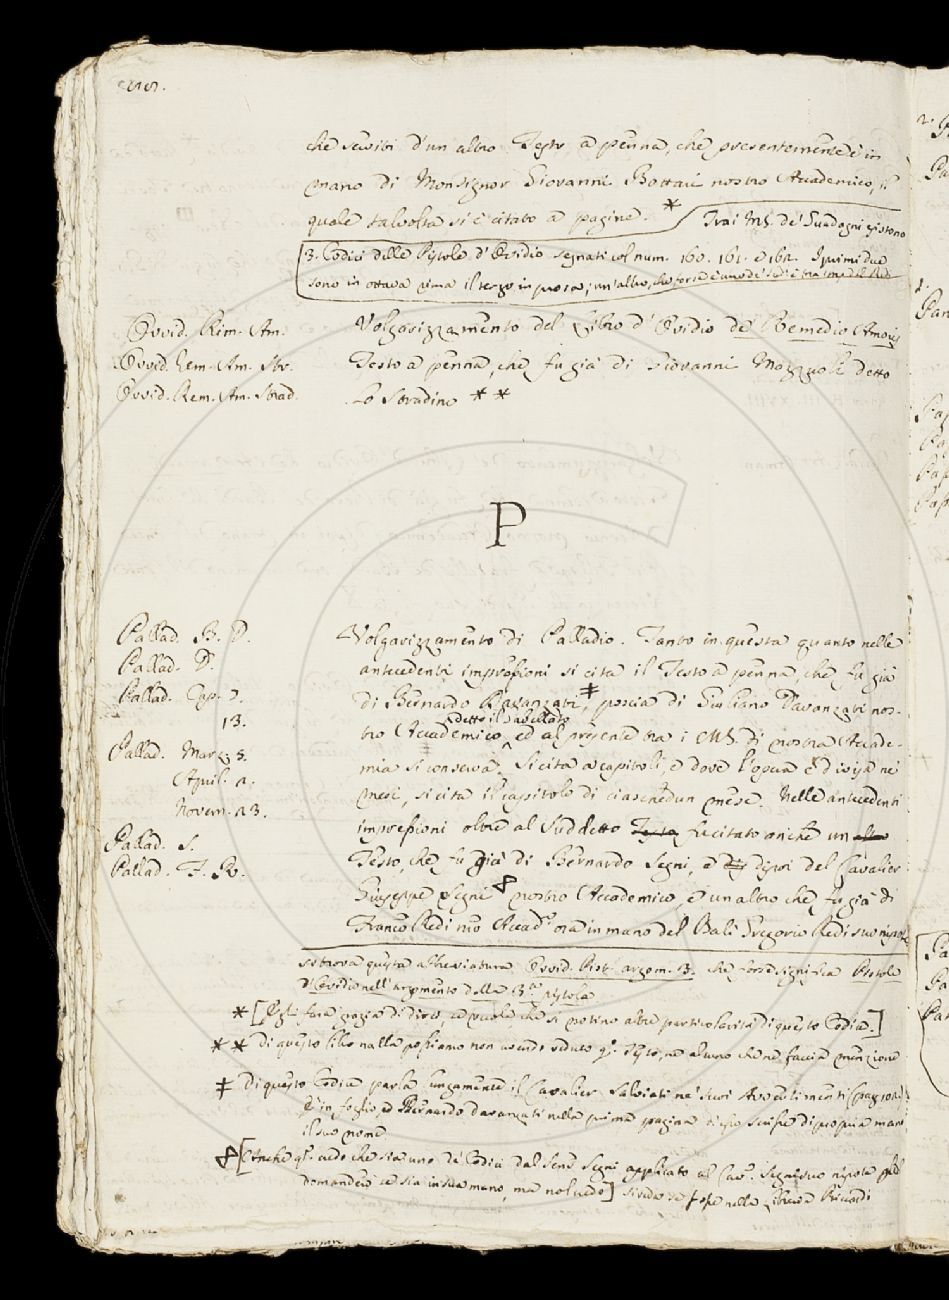 che servisi d'un altro Testo a penna, che presentemente è in
mano di Monsignor Giovanni Bottari nostro Accademico, il
quale talvolta si è citato a pagine. * Trai MS. de' Guadagni esistono
3. Codici delle Pistole d'Ovidio segnati col num. 160. 161. e 162. I primi due
sono in ottava rima il terzo in prosa; un'altro, che forse è uno de' sudi è tra del Redi
Ovvid. Rim. Am.
Ovvid. Rem. Am. Str.
Ovvid. Rem. Am. Strad.
Volgarizzamento del Libro d'Ovidio de Remedio Amoris
Testo a penna, che fu già di Giovanni Mazzuoli detto
Lo Stradino * *
P
Pallad. B. D.
Pallad. D.
Pallad. Cap. 7.
13.
Pallad. Marz. 8.
April. 2.
Novem. 23.
Pallad. S.
Pallad. F. R.
Volgarizzamento di Palladio. Tanto in questa quanto nelle
antecedenti impressioni si cita il Testo a penna, che fu già
di Bernardo Davanzati, ‡ poscia di Giuliano Davanzati nos-
detto il Sabellato
tro Accademico, ed al presente tra i MS. di nostra Accade-
mia si conserva. Si cita a capitoli, e dove l'opera è divisa ne'
mesi, si cita il capitolo di ciaschedun mese. Nelle antecedenti
impressioni oltre al suddetto Testo fu citato anche un altro
Testo, che fu già di Bernardo Segni, e di dipoi del Cavalier
Giuseppe Segni nostro Accademico, e un altro che fu già di
Franco Redi nro Accad. ora in mano del Balì Gregorio Redi suo nipote
si trova questa abbreviatura Ovvid. Pist. argom. B. che forse significa Pistole
d'Ovvidio nell'argomento della B.ª pistola
* [Egli farà grazia di dirci se vuole che si notino altre particolarità di questo Codice.]
* * di questo libro nulla possiamo non avendo veduto q.º Testo, ne alcuno che ne faccia menzione
‡ Di questo Codice parla lungamente il Cavalier Salviati ne' suoi Avvertimenti (pag.
È in foglio, e Bernardo davanzati nella prima pagina di esso scrisse di propria mano
il suo nome
[Anche q.º credo che sia uno de' Codici del Sen.e Segni applicato al Cav. Segni suo nipote
domanderò se sia in sua mano, ma nol credo] si veda se fosse nella Libreria Riccardi